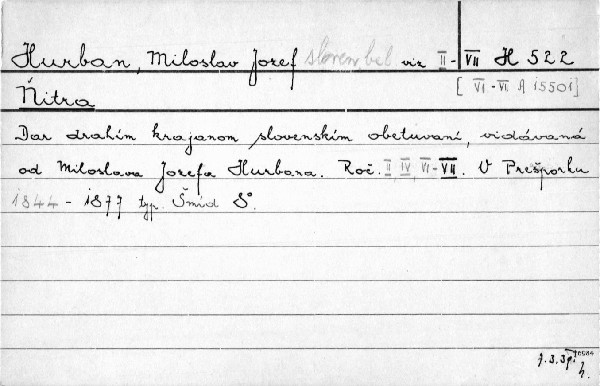 Hurban, Miloslav Jozef sloven. bel. viz II-VII H 522
[VI-VI A 15501]
Ňitra
Dar drahím krajanom slovenskím obetuvaní, vidávaná
od Miloslava Jozefa Hurbana. Roč. II, IV, VI-VII. V Prešporku
1844-1877 typ. Šmíd 8°.
7.3.39
h.